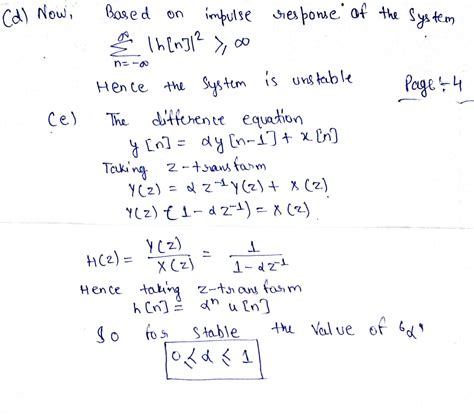 (d) Now, Based on impulse response of the System
∞
Σ |h[n]|² ≥, ∞
n=-∞
Hence the System is unstable
Page:- 4
(e) The difference equation
y[n] = αy[n-1] + x[n]
Taking z-transfarm
Y(z) = α z⁻¹ Y(z) + X(z)
Y(z) {1 - αz⁻¹) = X(z).
H(z) = Y(z)/X(z) = 1/(1-αz⁻¹)
Hence taking z-transfarm
h[n] = αⁿ u[n]
So for stable the value of 'α'
0 ≤ α ≤ 1